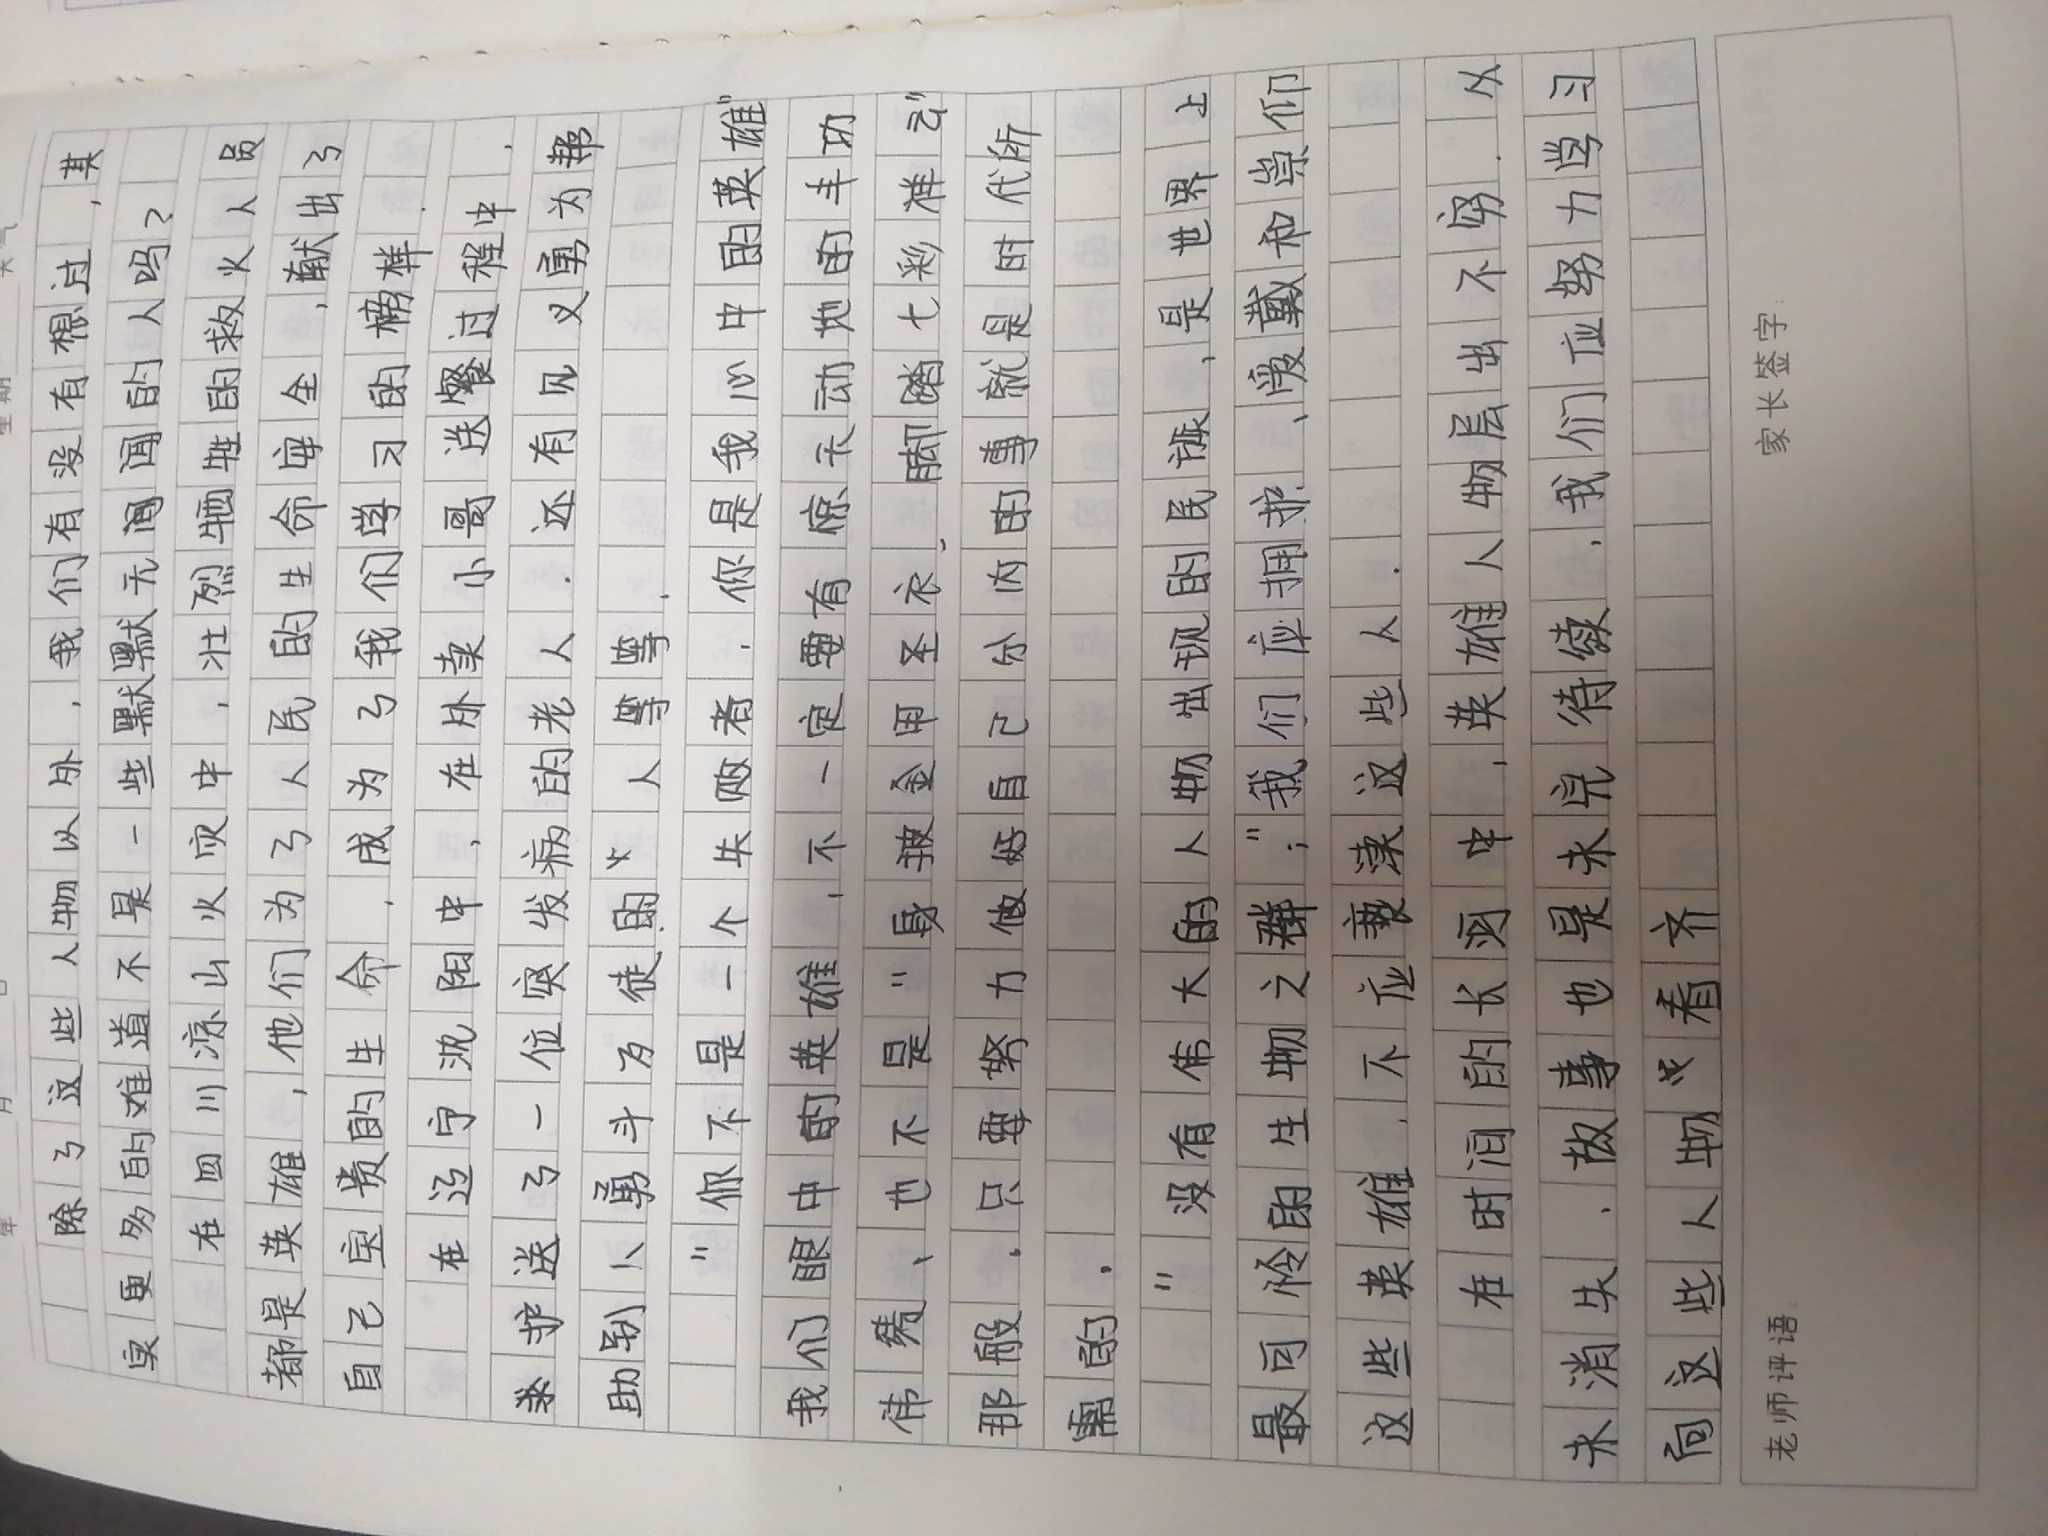 年 月 日 星期 天气
除了这些人物以外，我们有没有想过，其
实更多的难道不是一些默默无闻的人吗？
在四川凉山火灾中，壮烈牺牲的救火人员
都是英雄，他们为了人民的生命安全，献出了
自己宝贵的生命，成为了我们学习的榜样.
在辽宁沈阳中，在外卖小哥送餐过程中，
救护送了一位突发病的老人.还有见义勇为帮
助别人勇斗歹徒的人等等.
“你不是一个失败者.你是我心中的英雄”
我们眼中的英雄，不一定要有惊天动地的丰功
伟绩、也不是“身披金甲圣衣、脚踏七彩祥云”
那般.只要努力做好自己分内的事就是时代所
需的.
“没有伟大的人物出现的民族，是世界上
最可怜的生物之群；”我们应拥护、爱戴和崇仰
这些英雄.不应亵渎这些人.
在时间的长河中，英雄人物层出不穷.从
未消失.故事也是未完待续.我们应努力学习
向这些人物看齐
老师评语：
家长签字：